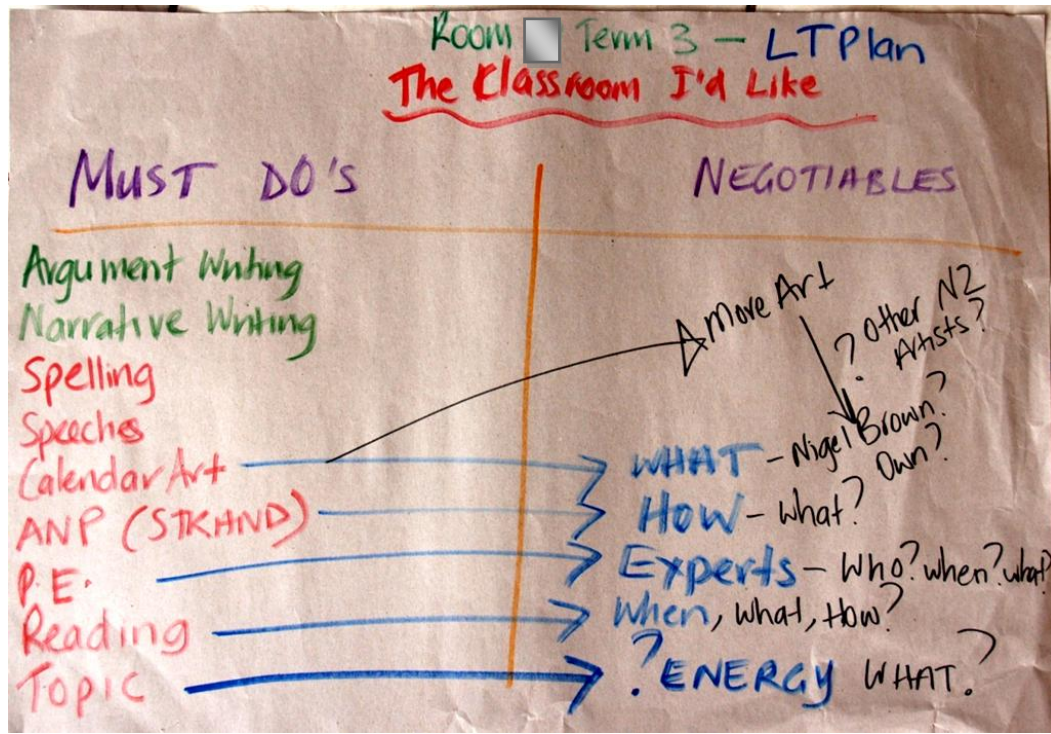 Room Term 3 - LTPlan
The Classroom I'd Like
MUST DO'S
NEGOTIABLES
Argument Writing
Narrative Writing
Spelling
Speeches
Calendar Art
ANP (STKHND)
P.E.
Reading
TOPIC
More Art
? Other NZ
Artists?
WHAT - Nigel Brown?
Own?
HOW - What?
Experts - Who? when? what?
When, What, How?
? ENERGY WHAT?